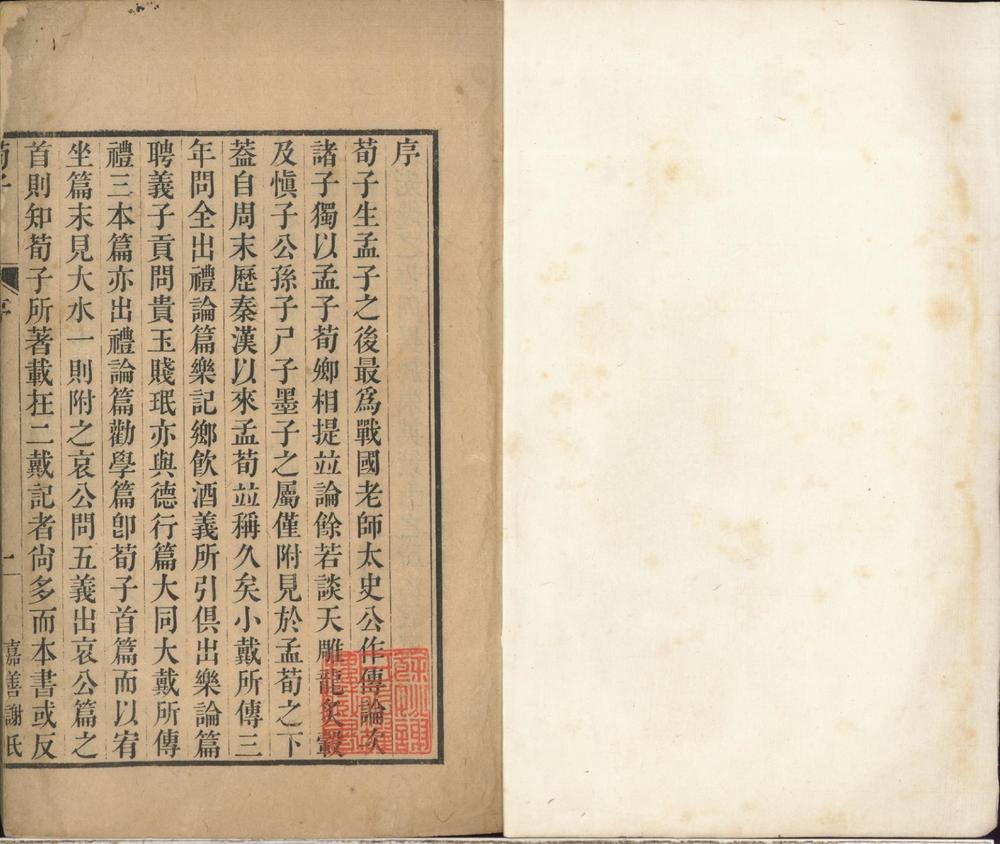 序
荀子生孟子之後最爲戰國老師太史公作傳論次
諸子獨以孟子荀卿相提竝論餘若談天雕龍炙轂
及愼子公孫子尸子墨子之屬僅附見於孟荀之下
葢自周末歷秦漢以來孟荀竝稱久矣小戴所傳三
年問全出禮論篇樂記鄉飮酒義所引俱出樂論篇
聘義子貢問貴玉賤珉亦與德行篇大同大戴所傳
禮三本篇亦出禮論篇勸學篇卽荀子首篇而以宥
坐篇末見大水一則附之哀公問五義出哀公篇之
首則知荀子所著載在二戴記者尙多而本書或反
荀子
序
一
嘉善謝氏